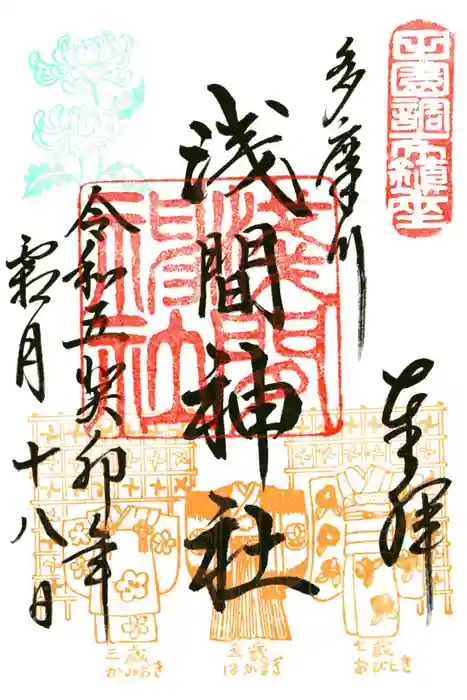 田園調布鎮座
奉拝
多摩川
浅間神社
浅間
神社
令和五癸卯年
霜月
十八日
七歳
おびとき
五歳
はかまぎ
三歳
かみおき